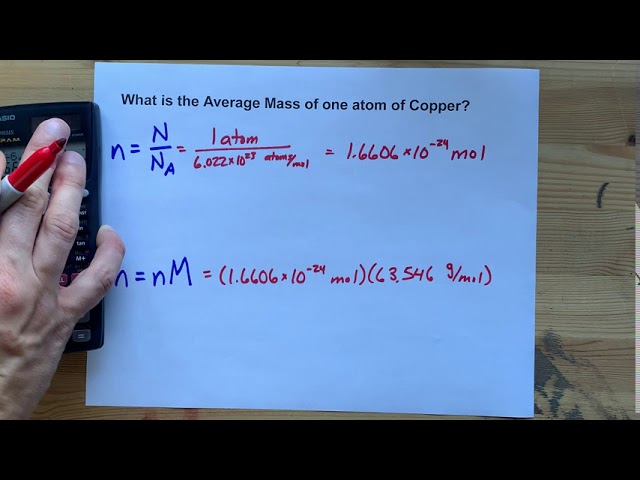 What is the Average Mass of one atom of Copper?
n = N/N_A = 1 atom / 6.022×10²³ atoms/mol = 1.6606×10⁻²⁴ mol
= nM = (1.6606×10⁻²⁴ mol)(63.546 g/mol)
M+
tan